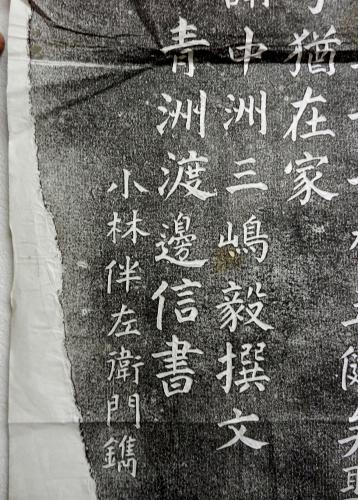 猶在家
中洲三嶋毅撰文
青洲渡邊信書
小林伴左衛門鐫